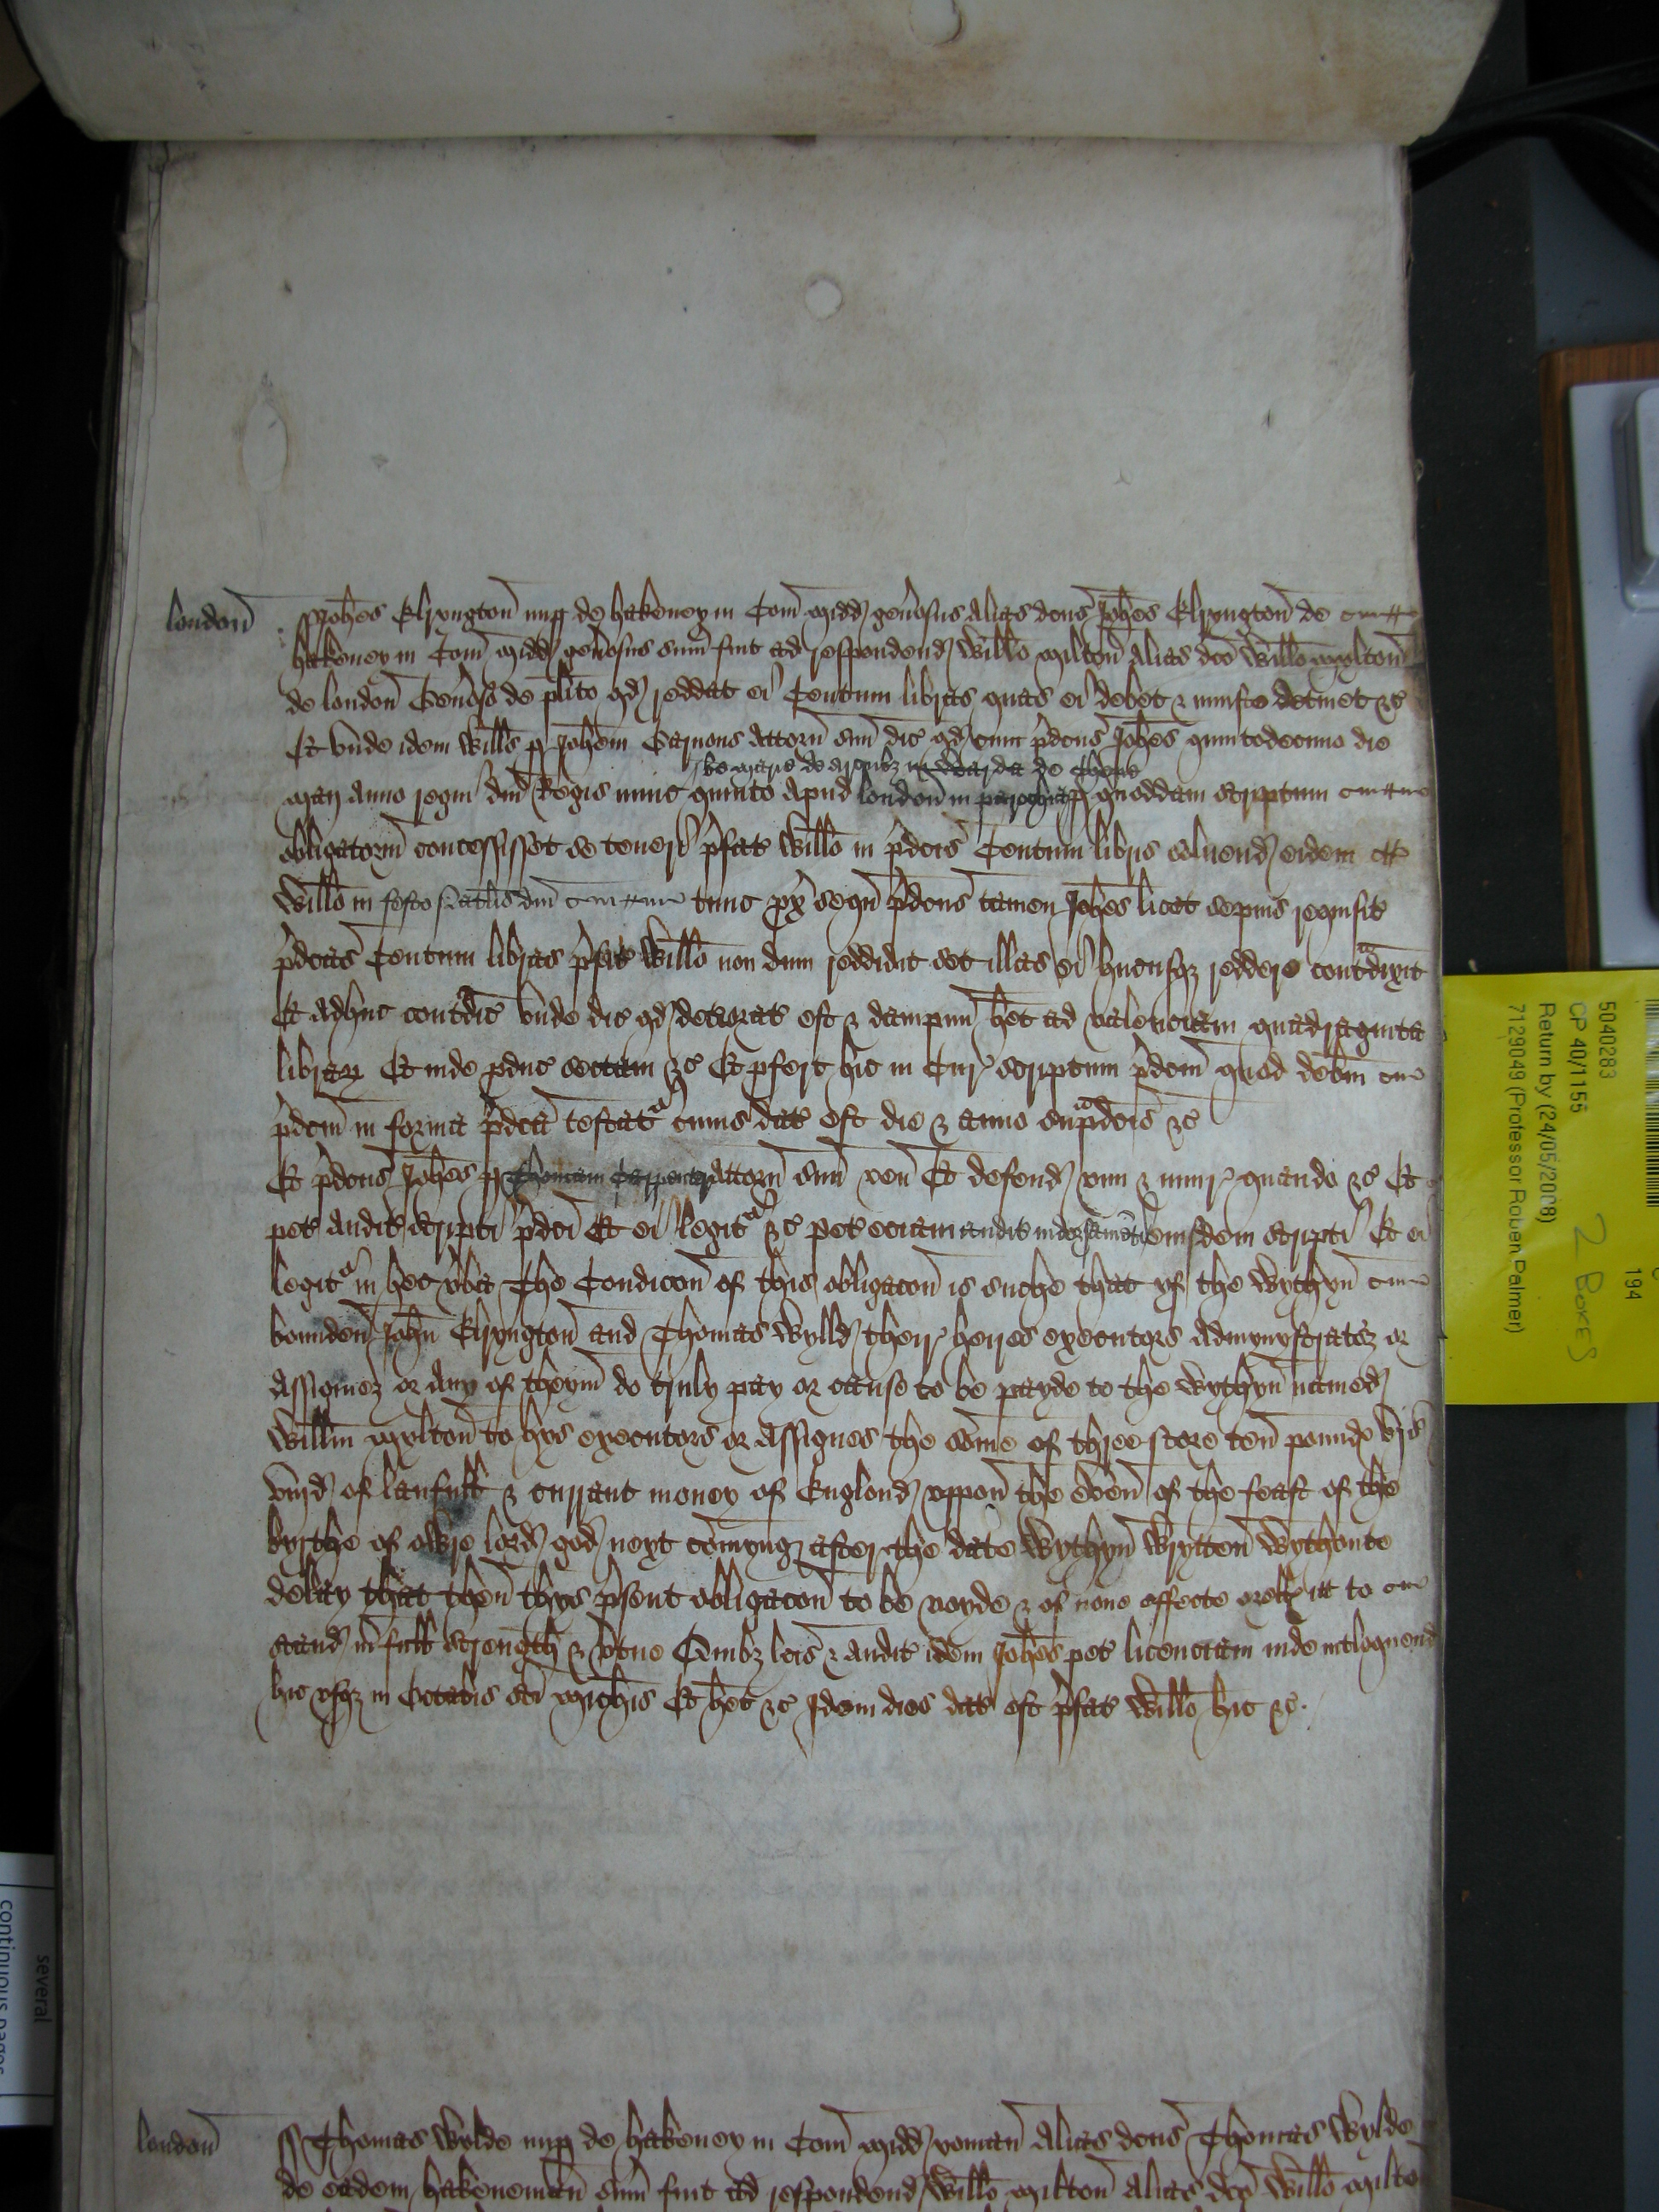 london ss Johes Elryngton nup de hakeney in Com Midd generosus Alias dcus Johes Elryngton de
hakeney in Com Midd generosus sum fuit ad respondend Willo Milton Alias dco Willo Mylton
de london Generoso de plito qd reddat ei Centum libras quas ei debet & iniuste detinet &c
Et unde idem Wills p Johem attorn suu dic qd cum pdcus Johes quintodecimo die
be marie de arcubz in Warda de Chepe
Maij Anno regni dni Regis nunc quinto Apud london in parochia p quoddam scriptum
obligatorm concessisset se teneri pfat Willo in pdcis Centum libris solvend eidem
Willo in festo Natlis dni tunc px sequ pdcus tamen Johes licet sepius requisit
pdcas Centum libras pfat Willo non dum reddidit set illas ei hucusqz reddere contradixit
Et adhuc contradic unde dic qd deteriorat est & dampnu het ad valenciam quadraginta
librar Et inde pduc sectam &c Et pfert hic in Cur scriptum pdcm quod debm
pdcm in forma pdca testatr cuius dat est die & anno supradcis &c
Et pdcus Johes p Thomam Carpenter attorn suu ven Et defend vim & iniur quando &c Et
pet audit scripti pdci Et ei legitr &c pet eciam audit indorsamenti eiusdem scripti Et ei
legitr in hec vba The Condicon of this obligacon is suche that yf the wythyn
bounden John Elryngton and Thomas Wylld their heires executors Admynystratrz or
Assignez or Any of theym do truly pay or cause to be payde to the wythyn named
Willm Mylton to hys executors or Assignes the some of three score ten pounde vjs
viijd of laufull & currant money of Englond uppon the even of the feast of the
byrthe of owre lord god next comyng after the date wythyn wrytten wythoute
delay that then thys psent obligacon to be voyde & of none effecte orels it to
stand in full strength & vtue Quibz lcis & audit idem Johes pet licenciam inde intloquend
hic usqz in Octabis sci Michis Et het &c Idem dies dat est pfat Willo hic &c
london ss Thomas Wylde nup de hakeney in Com Midd yoman Alias dcus Thomas Wylde
de eadem hakeneman sum fuit ad respondend Willo Milton Alias dco Willo Milto
5040283
CP 40/1155
Return by (24/05/2008)
7129049 (Professor Robert Palmer)
194
2 Boxes
several
continuous pages